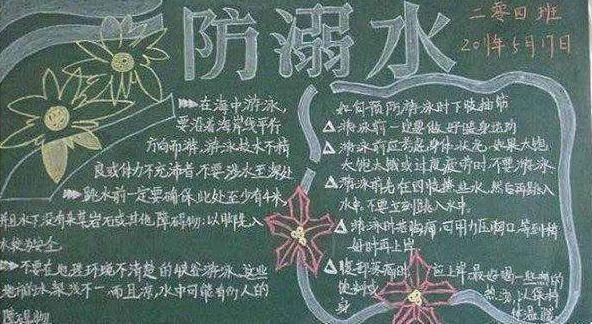 防溺水
二零四班
201年5月17日
在海中游泳,
要沿着海岸线平行
方向而游,游泳技术不精
良或体力不充沛者,不要涉水至深处
跳水前一定要确保此处至少有
并且水下没有 岩石或其他障碍物:以
水较为安全
不要在地理环境不清楚的峡谷游泳,这些
地 不一而且凉,水中可能有伤人的
障碍物
如何预防游泳时下肢抽筋
游泳前一定要做好暖身运动
游泳前应考虑身体状况,如果太饱
太饿或过度疲劳时,不要游泳
游泳前先在四肢 些水,然后再跳入
水中,不要立刻跳入水中。
游泳时若胸痛,可用力压胸口,等到稍
好时再上岸
腹部 时 应上岸,最好喝一些热的
热汤,以保持
身 体温暖